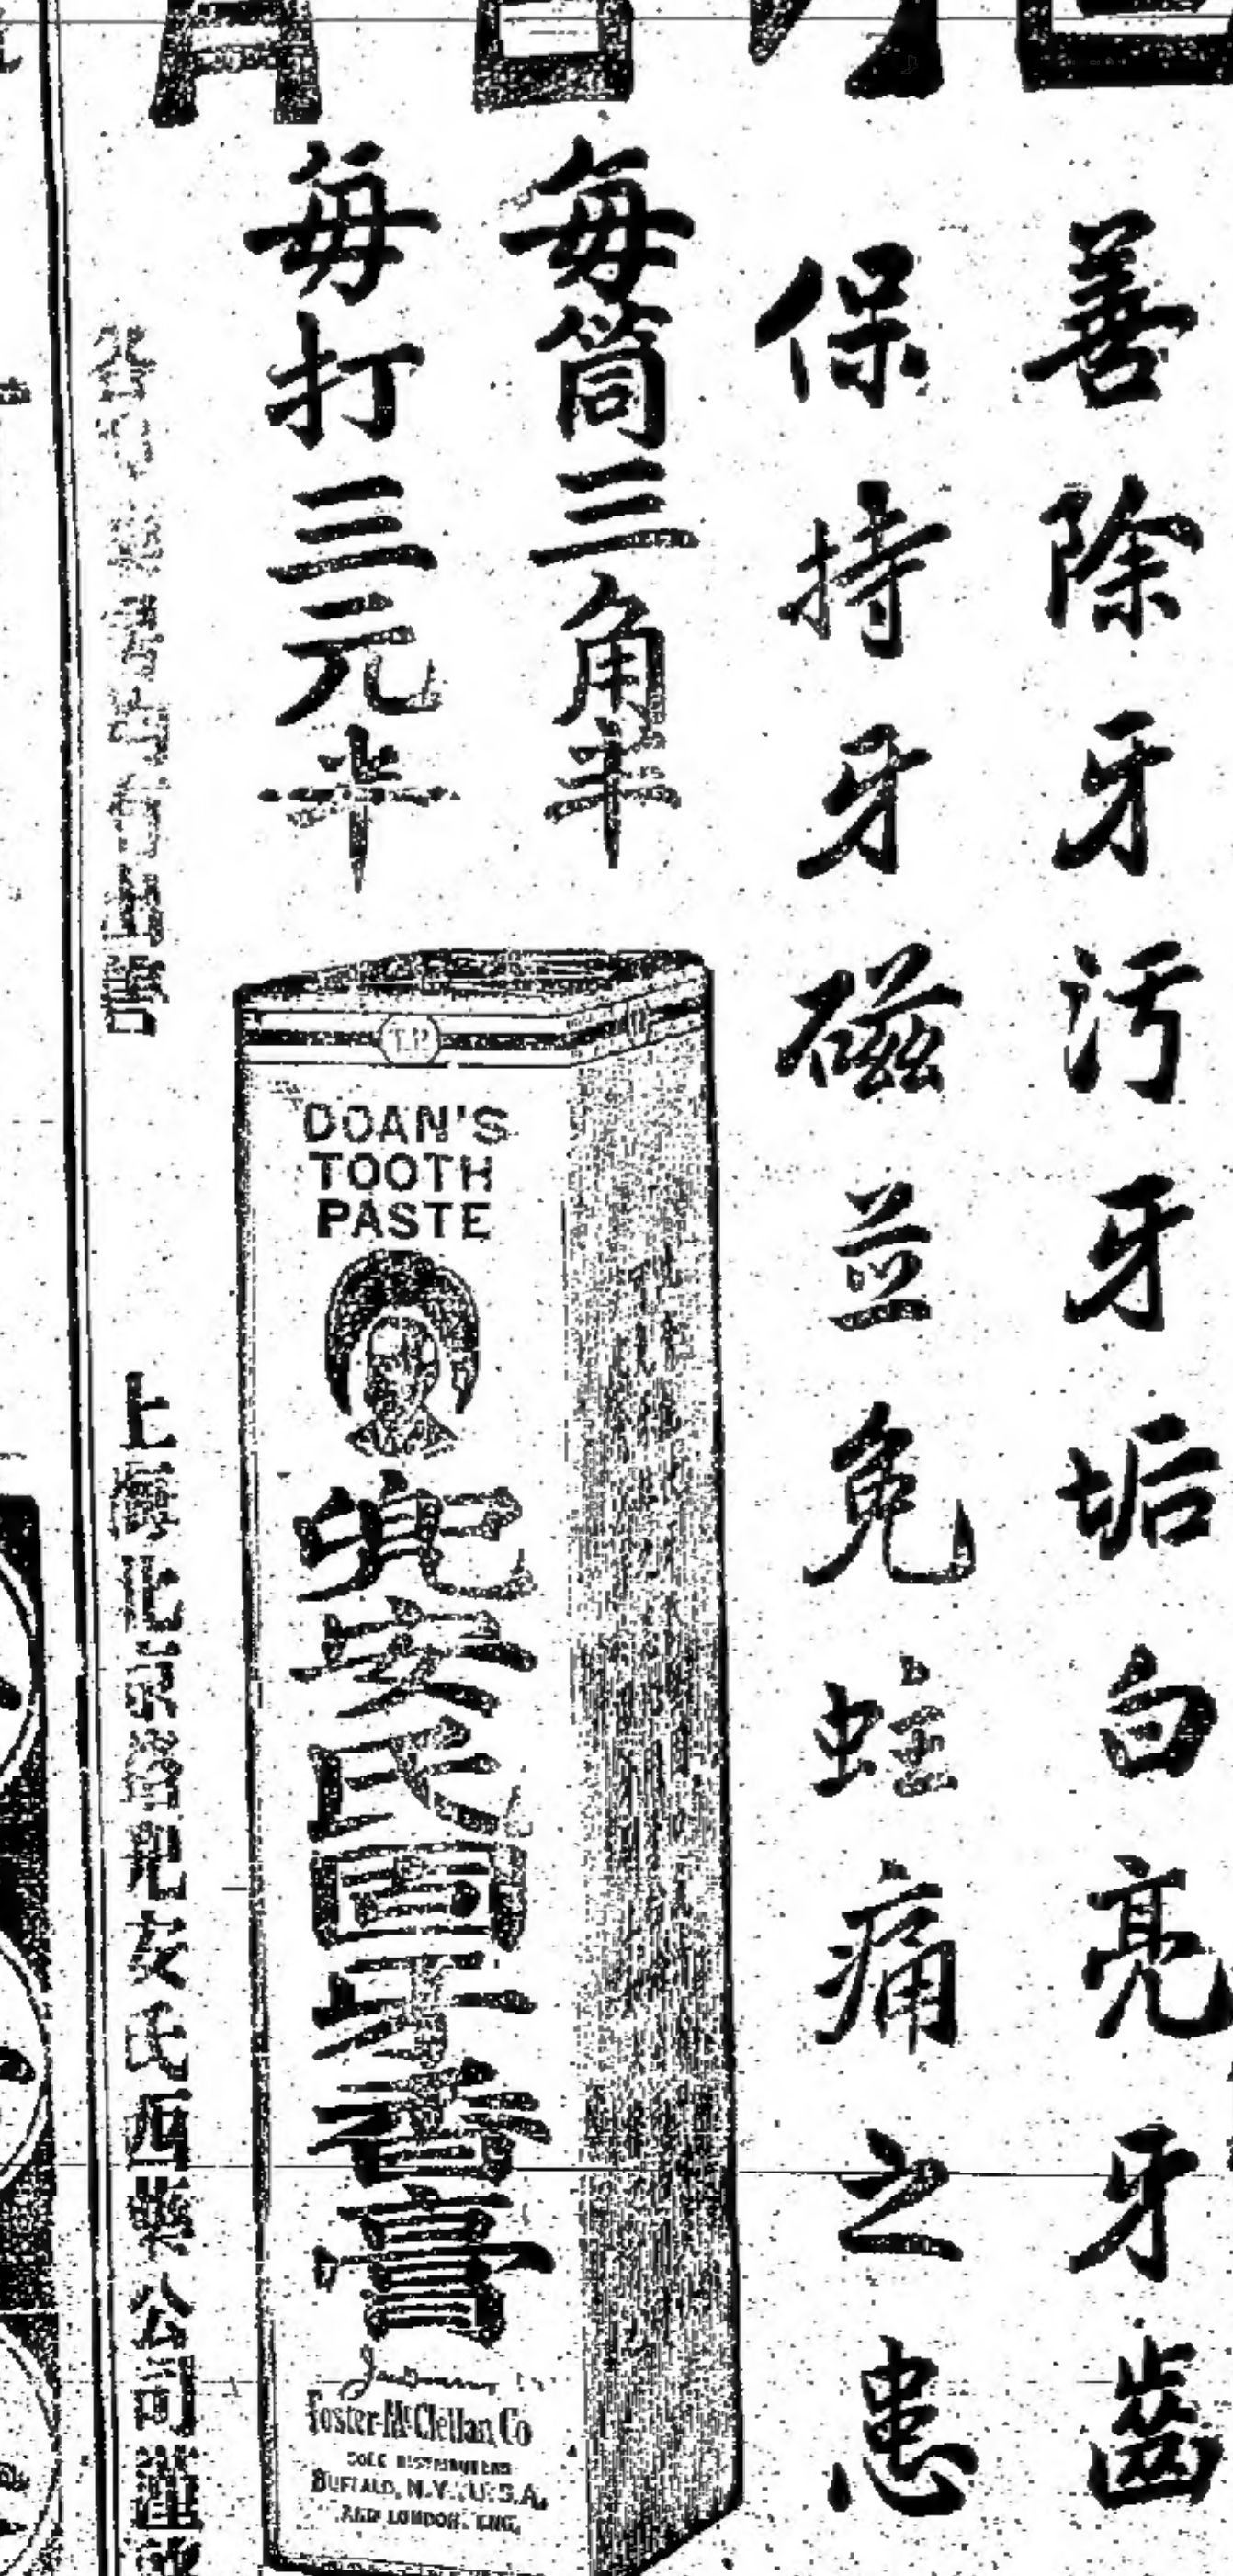 善除牙污牙垢白亮牙齒
保持牙磁並免蛀痛之患
每筒三角半
每打三元半
DOAN'S
TOOTH
PASTE
兜安氏固牙香膏
Foster-McClellan Co
SOLE DISTRIBUTERS
BUFFALO, N.Y., U.S.A.
AND LONDON, ENG.
上海北京路兜安氏西藥公司謹啟